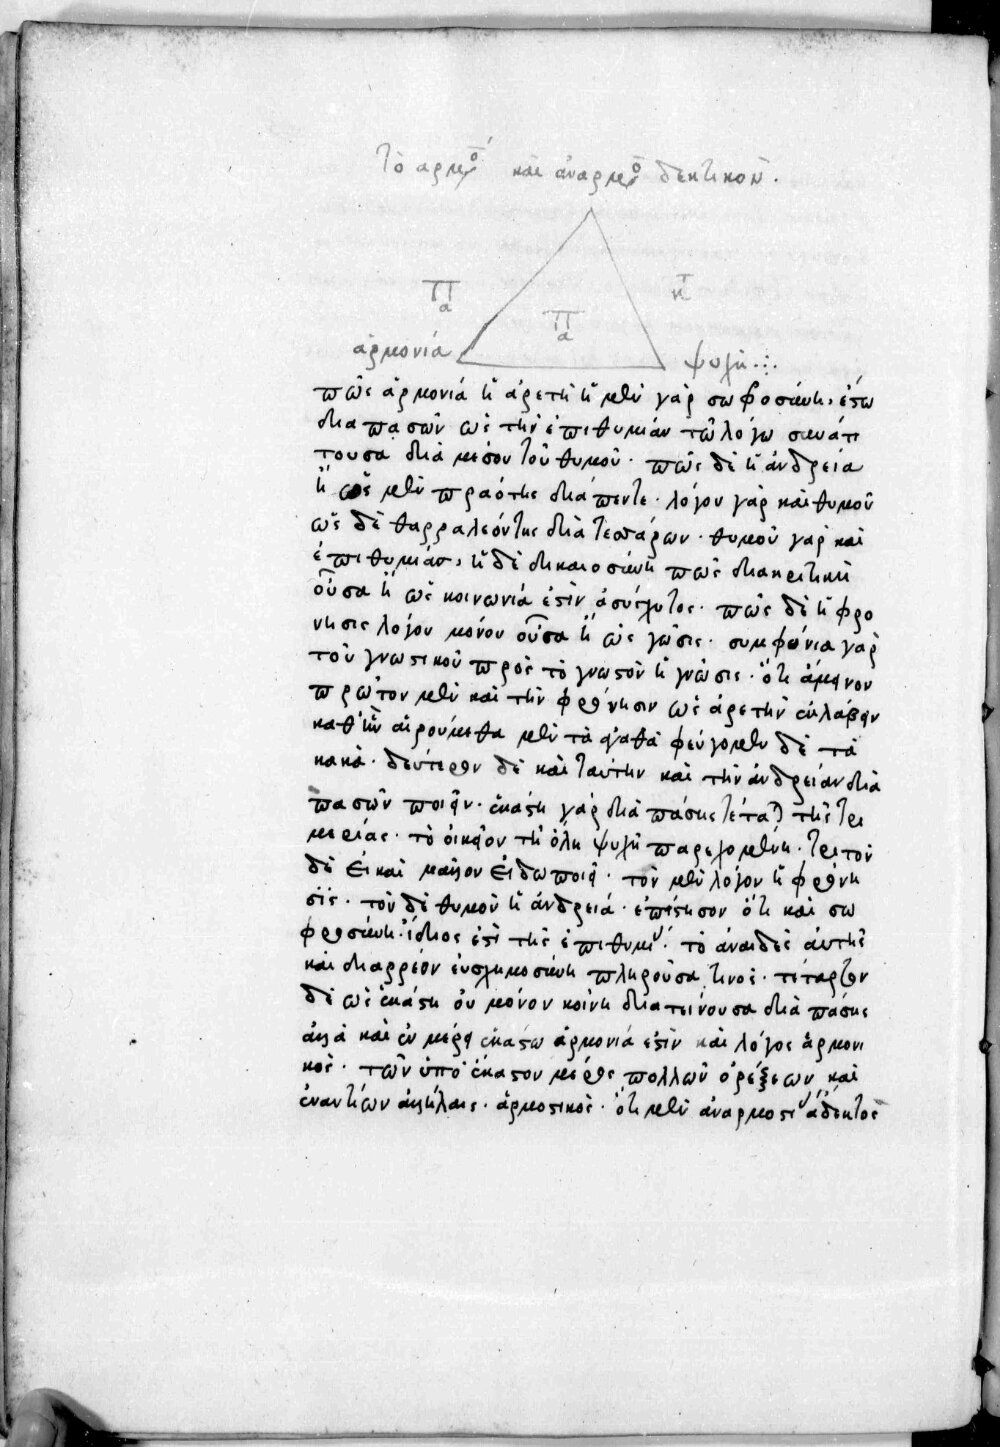 τὸ αρμο καὶ ἀναρμο δεκτικόν.
Π
α
κ
Π
α
ἁρμονία
ψυχή
πῶς ἁρμονία ἡ ἀρετὴ ἡ μὲν γὰρ σωφροσύνη, ἔστω
διαπασῶν ὡς τὴν ἐπιθυμίαν τῶ λόγω συνάπ
τουσα διὰ μέσου τοῦ θυμοῦ. πῶς δὲ ἡ ἀνδρεία
ἢ ὡς μὲν πραότης διάπεντε. λόγου γὰρ καὶ θυμοῦ
ὡς δὲ θαρραλεότης διὰ τεσσάρων. θυμοῦ γὰρ καὶ
ἐπιθυμίας, ἡ δὲ δικαιοσύνη πῶς διακριτικὴ
οὖσα ἢ ὡς κοινωνία ἐστὶν ἀσύγχυτος. πῶς δὲ ἡ φρο
νησις λόγου μόνου οὖσα ἢ ὡς γνῶσις. συμφωνία γὰρ
τοῦ γνωστικοῦ πρὸς τὸ γνωστὸν ἡ γνῶσις. ὅτι ἄμεινον
πρῶτον μὲν καὶ τὴν φρόνησιν ὡς ἀρετὴν ἐκλαβεῖν
καθ' ἣν αἱρούμεθα μὲν τὰ ἀγαθὰ φεύγομεν δὲ τὰ
κακά. δεύτερον δὲ καὶ ταύτην καὶ τὴν ἀνδρείαν διὰ
πασῶν ποιεῖν. ἑκάστη γὰρ διὰ πάσης τέταται τῆς τρι
μερίας. τὸ οἰκεῖον τῆ ὅλη ψυχῆ παρεχομένη. τρίτον
δὲ εἰ καὶ μᾶλλον εἰδωποιεῖ. τὸν μὲν λόγον ἡ φρόνη
σις. τὸν δὲ θυμὸν ἡ ἀνδρειά. ἐπίστησον ὅτι καὶ σω
φροσύνη. ἴδιος ἐστὶ τῆς ἐπιθυμι. τὸ ἀναιδὲς αὐτῆς
καὶ διαρρέον εὐσχημοσύνη πληροῦσα τινος. τέταρτον
δὲ ὡς ἑκάστη οὐ μόνον κοινῆ διατείνουσα διὰ πάσης
ἀλλὰ καὶ ἐν μέρει ἑκάστω ἁρμονία ἐστὶν καὶ λόγος ἁρμονι
κὸς. τῶν ὑπὸ ἕκαστον μέρος πολλῶν ὀρέξεων καὶ
ἐναντίων ἀλλήλαις. ἁρμοστικὸς. ὅτι μὲν ἀναρμοστι ἄδεκτος